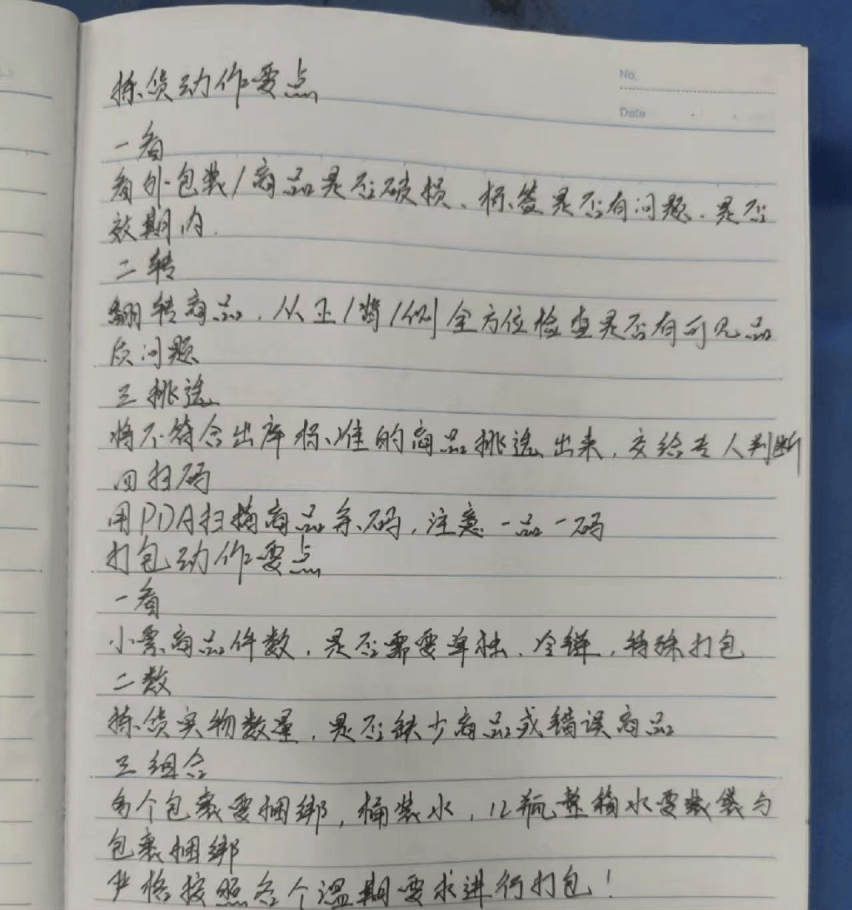 No.
Date
拣货动作要点
一看
看外包装/商品是否破损、标签是否有问题、是否
效期内.
二转
翻转商品,从正/背/侧全方位检查是否有可见品
质问题
三挑选
将不符合出库标准的商品挑选出来,交给专人判断
四扫码
用PDA扫描商品条码,注意一品一码
打包动作要点
一看
小票商品件数,是否需要单独、冷鲜,特殊打包
二数
拣货实物数量,是否缺少商品或错误商品
三组合
多个包裹要捆绑,桶装水,12瓶整箱水要装袋与
包裹捆绑
严格按照各个温期要求进行打包!